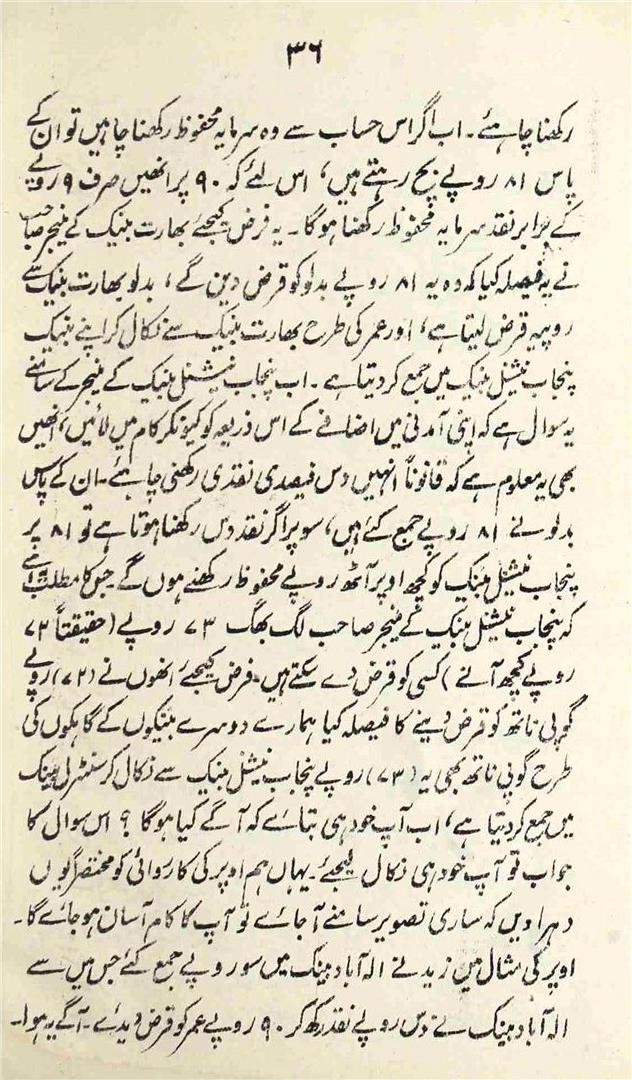 ۳۶
رکھنا چاہئے۔ اب اگر اس حساب سے وہ سرمایہ محفوظ رکھنا چاہیں تو ان کے
پاس ۸۱ روپے بچ رہتے ہیں، اس لئے کہ ۹۰ پر انھیں صرف ۹ روپے
کے برابر نقد سرمایہ محفوظ رکھنا ہوگا۔ یہ فرض کیجئے بھارت بنیک کے منیجر صاحب
نے یہ فیصلہ کیا کہ وہ یہ ۸۱ روپے بدلو کو قرض دیں گے، بدلو بھارت بنیک سے
روپیہ قرض لیتا ہے، اور عمر کی طرح بھارت بنیک سے نکال کر اپنے بنیک
پنجاب نیشنل بنیک میں جمع کر دیتا ہے۔ اب پنجاب نیشنل بنیک کے منیجر کے سامنے
یہ سوال ہے کہ اپنی آمدنی میں اضافے کے اس ذریعہ کو کیونکر کام میں لائیں، انھیں
بھی یہ معلوم ہے کہ قانوناً انہیں دس فیصدی نقدی رکھنی چاہئے۔ ان کے پاس
بدلو نے ۸۱ روپے جمع کئے ہیں، سو پر اگر نقد دس رکھنا ہوتا ہے تو ۸۱ پر
پنجاب نیشنل بنیک کو کچھ اوپر آٹھ روپے محفوظ رکھنے ہوں گے جس کا مطلب یہ ہے
کہ پنجاب نیشنل بنیک کے منیجر صاحب لگ بھگ ۷۳ روپے (حقیقتاً ۷۲
روپے کچھ آنے) کسی کو قرض دے سکتے ہیں۔ فرض کیجئے انھوں نے (۷۳) روپے
گوپی ناتھ کو قرض دینے کا فیصلہ کیا ہمارے دوسرے بنیکوں کے گاہکوں کی
طرح گوپی ناتھ بھی یہ (۷۳) روپے پنجاب نیشنل بنیک سے نکال کر سنٹرل بینک
میں جمع کر دیتا ہے، اب آپ خود ہی بتائے کہ آگے کیا ہوگا؟ اس سوال کا
جواب تو آپ خود ہی نکال لیجئے۔ یہاں ہم اوپر کی کاروائی کو مختصراً یوں
دہرا دیں کہ ساری تصویر سامنے آ جائے تو آپ کا کام آسان ہو جائے گا۔
اوپر کی مثال میں زید نے الہ آباد بینک میں سو روپے جمع کئے جس میں سے
الہ آباد بینک نے دس روپے نقد رکھ کر ۹۰ روپے عمر کو قرض دیدئے۔ آگے یہ ہوا۔